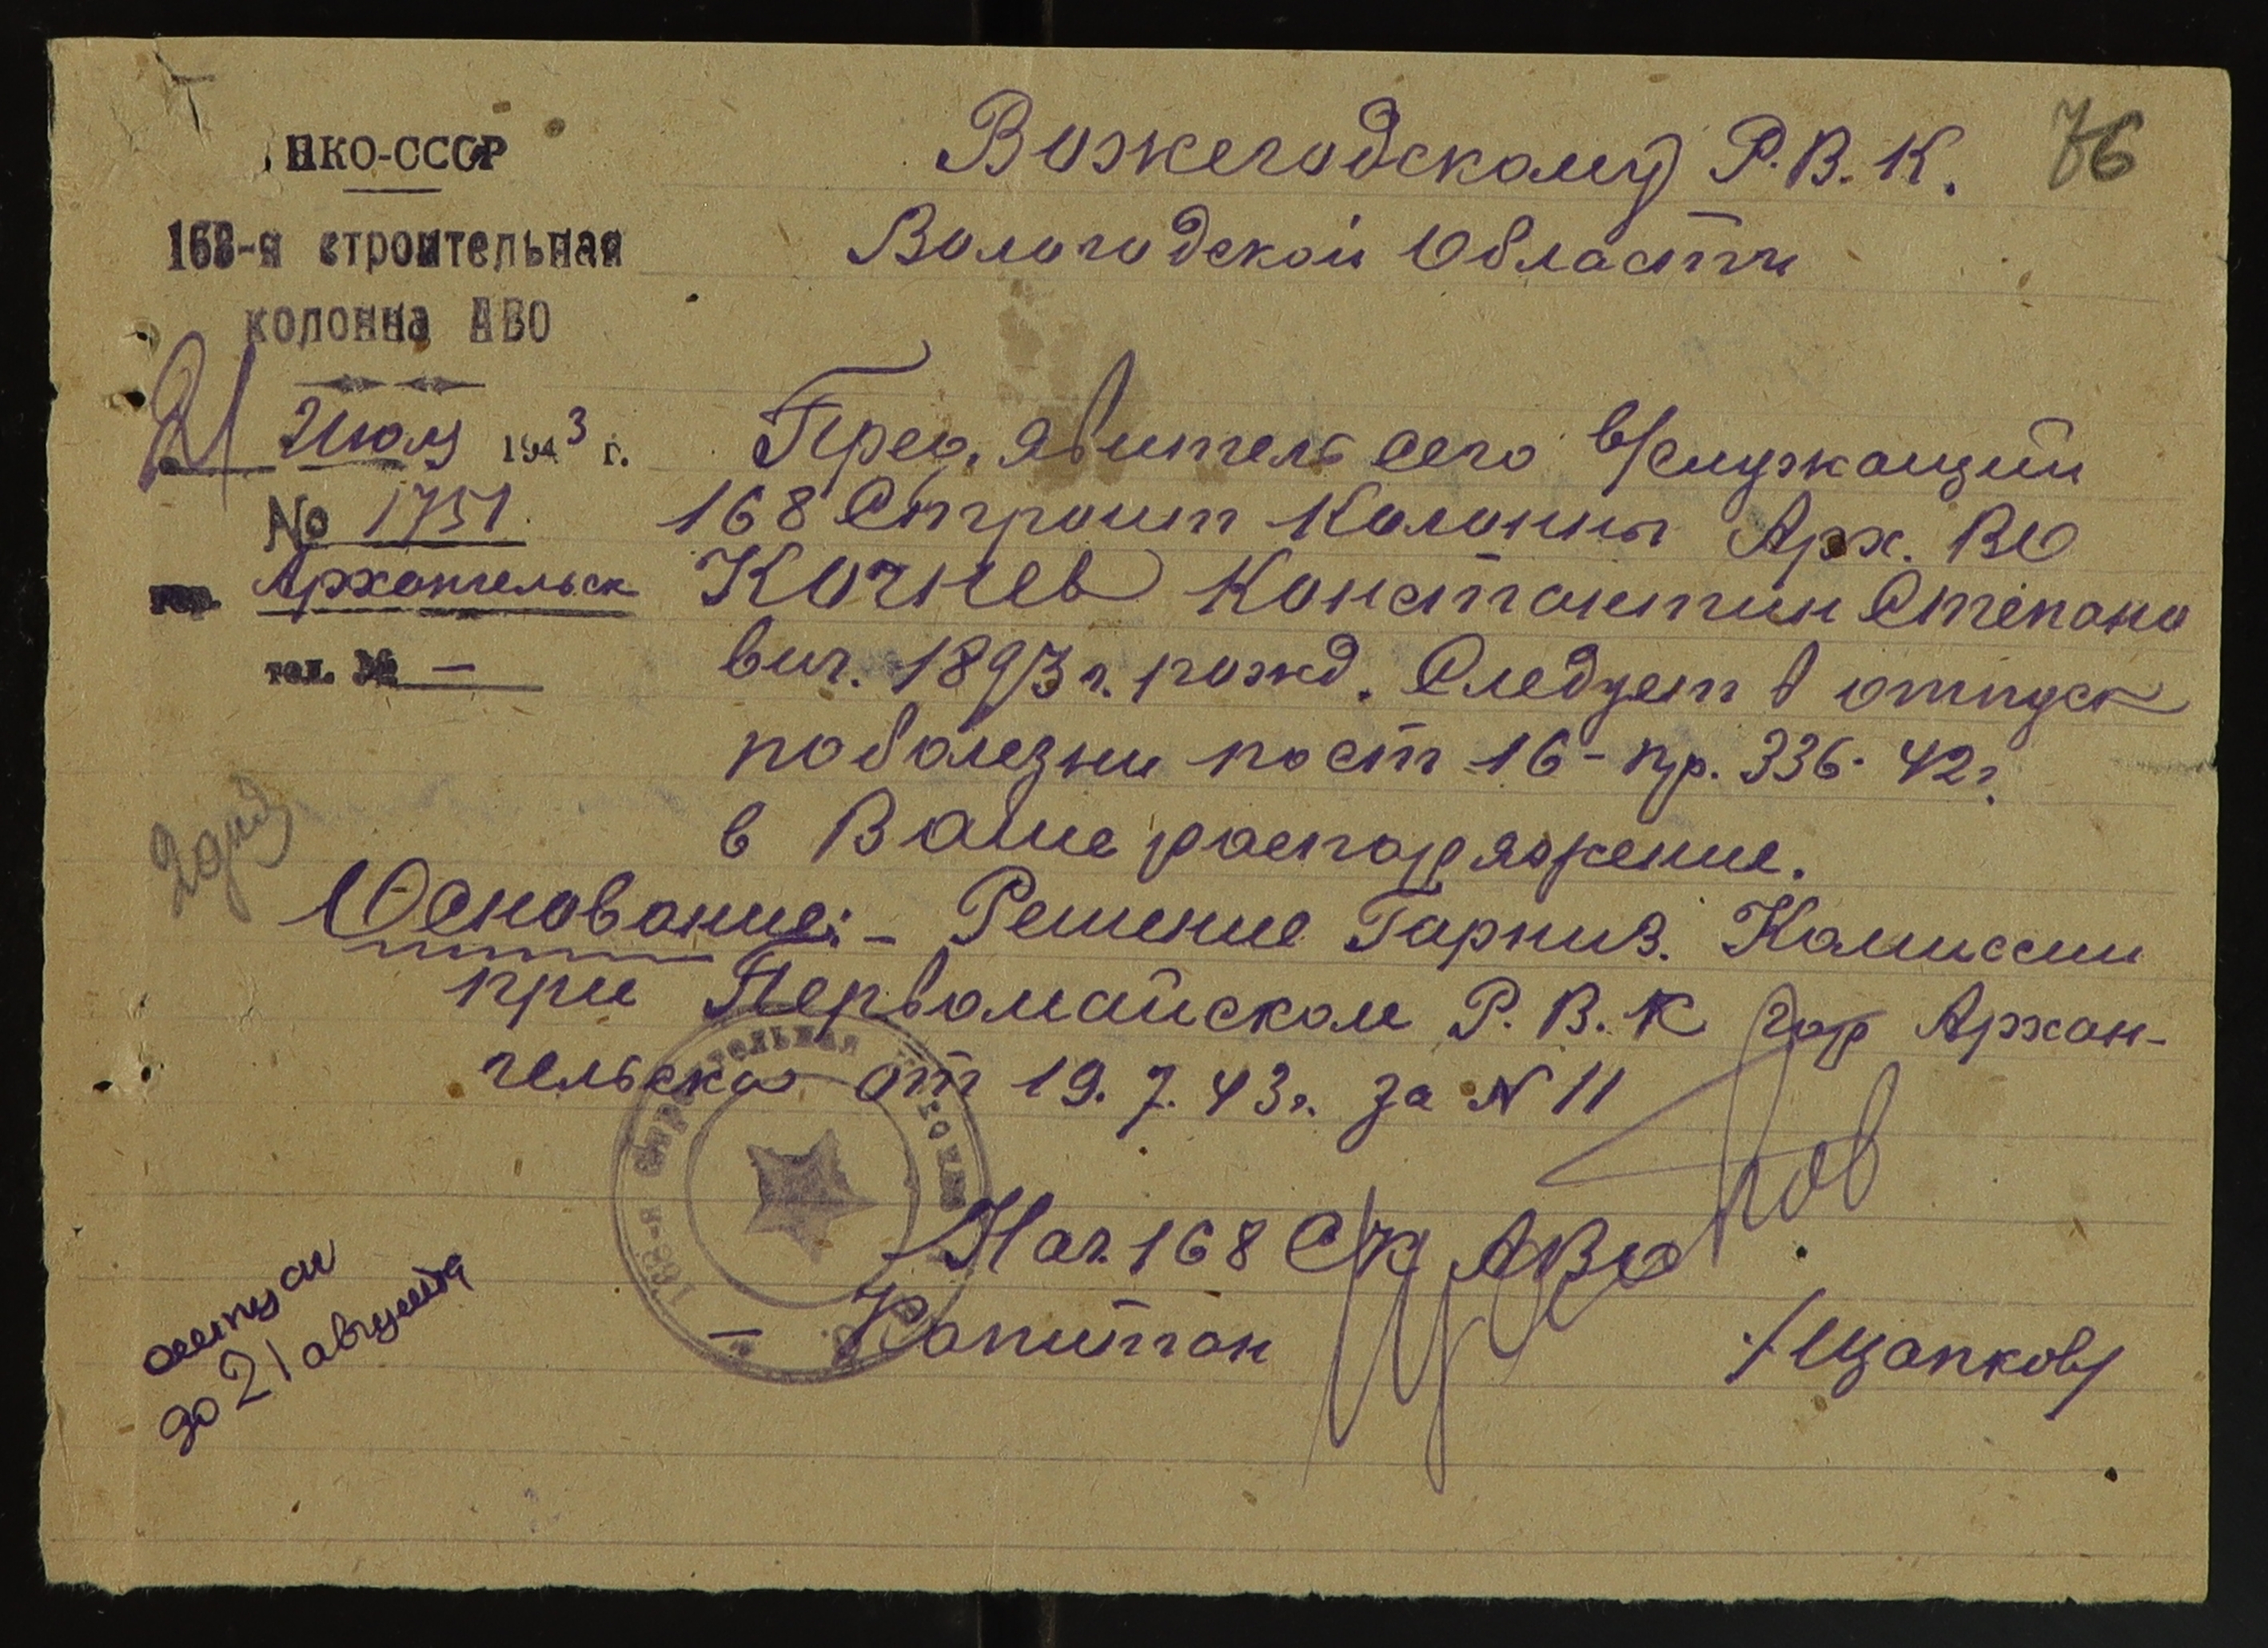 76
НКО-СССР
168-я строительная
колонна АВО
21 Июля 1943 г.
№ 1751
гор. Архангельск
тел. № —
Вожегодскому Р.В.К.
Вологодской Области
Пред,явитель сего в/служащий
168 Строит Колонны Арх. ВО
Кочнев Константин Степано
вич. 1893 г. рожд. Следует в отпуск
по болезни по ст 16 - пр. 336. 42 г.
в Ваше распоряжение.
Основание: - Решение Гарниз. Комиссии
при Первомайском Р.В.К гор Архан-
гельска от 19.7.43 г. за N 11
Нач. 168 С/К АВО
- Капитан /Щапков/
168-я строительная колонна
2 дня
отпуск
до 21 августа